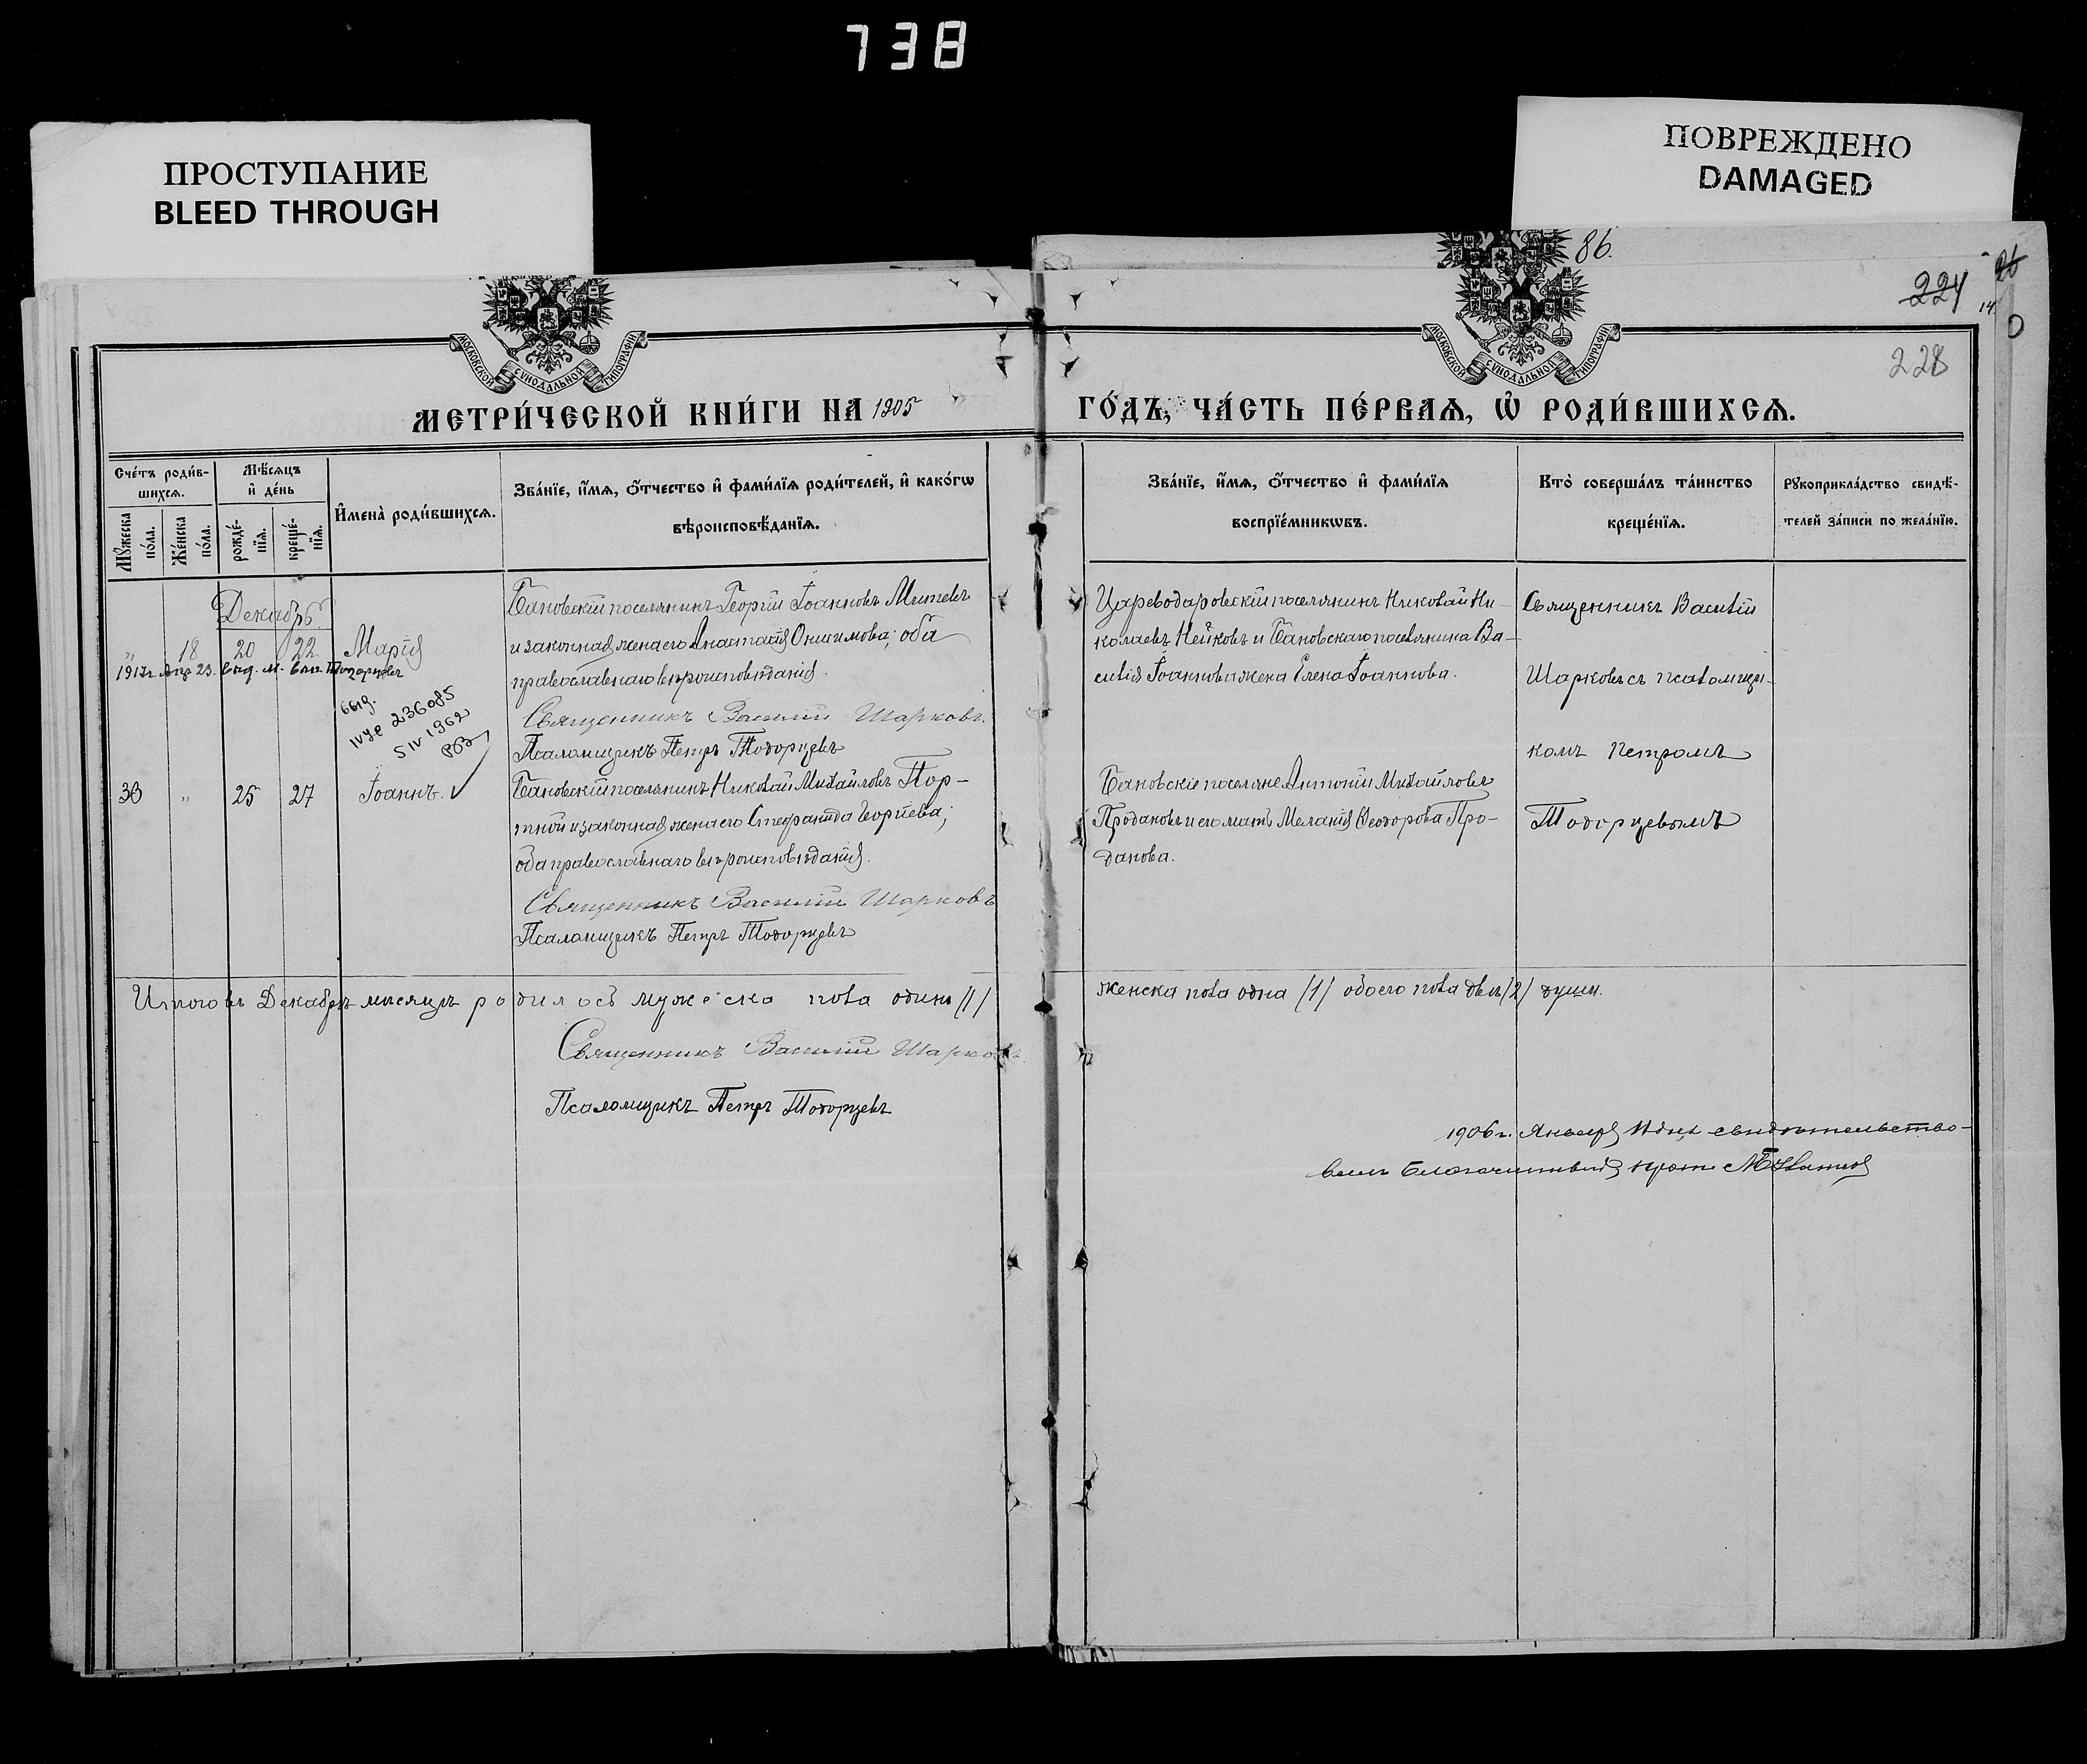 738
ПРОСТУПАНИЕ
BLEED THROUGH
ПОВРЕЖДЕНО
DAMAGED
86.
224
14.
228
МОСКОВСКОЙ СУНОДАЛЬНОЙ ТИПОГРАФІИ
МОСКОВСКОЙ СУНОДАЛЬНОЙ ТИПОГРАФІИ
МЕТРИ́ЧЕСКОЙ КНИ́ГИ НА 1905
ГО́ДЪ, ЧА́СТЬ ПЕ́РВАѦ, Ѿ РОДИ́ВШИХСѦ.
Сче́тъ роди́в-
шихсѧ.
Мѣ́сѧцъ
и де́нь
Мꙋ́жеска по́ла.
Же́нска по́ла.
рожде́-
нїѧ.
креще́-
нїѧ.
Имена̀ роди́вшихсѧ.
Зва́нїе, и́мѧ, ѻ́тчество и фами́лїѧ роди́телей, и како́гѡ
вѣроисповѣ́данїѧ.
Зва́нїе, и́мѧ, ѻ́тчество и фами́лїѧ
воспрїе́мникѡвъ.
Кто̀ соверша́лъ та́инство
креще́нїѧ.
Рꙋкоприкла́дство свидѣ́-
телей за́писи по жела́нїю.
Декабрь.
„ 18 20 22 Марія
Бановскій поселянинъ Георгій Іоанновъ Митевъ
и законная жена его Анастасія Онисимова; оба
православнаго вѣроисповѣданія.
Священникъ Василій Шарковъ.
Псаломщикъ Петръ Тодорцевъ
Цареводаровскій поселянинъ Николай Ни-
колаевъ Нейковъ и Бановскаго поселянина Ва-
силія Іоаннова жена Елена Іоаннова.
Священникъ Василій
Шарковъ съ псаломщи-
комъ Петромъ
Тодорцевымъ
1917г. Апр 23. выд. м.
выд.
IV УС 236085
5 IV 1962
30 „ 25 27 Іоаннъ.
Бановскій поселянинъ Николай Михайловъ Пор-
тной и законная жена его Стефанида Георгіева;
оба православнаго вѣроисповѣданія.
Священникъ Василій Шарковъ
Псаломщикъ Петръ Тодорцевъ
Бановскіе поселяне Антоній Михайловъ
Продановъ и его мать Меланія Ѳеодорова Про-
данова.
Итого въ Декабрѣ мѣсяцѣ родилось мужеска пола одинъ /1/
женска пола одна /1/ обоего пола двѣ /2/ души.
Священникъ Василій Шарковъ
Псаломщикъ Петръ Тодорцевъ
1906г. Января 11 дня свидѣтельство-
валъ Благочинный прот.